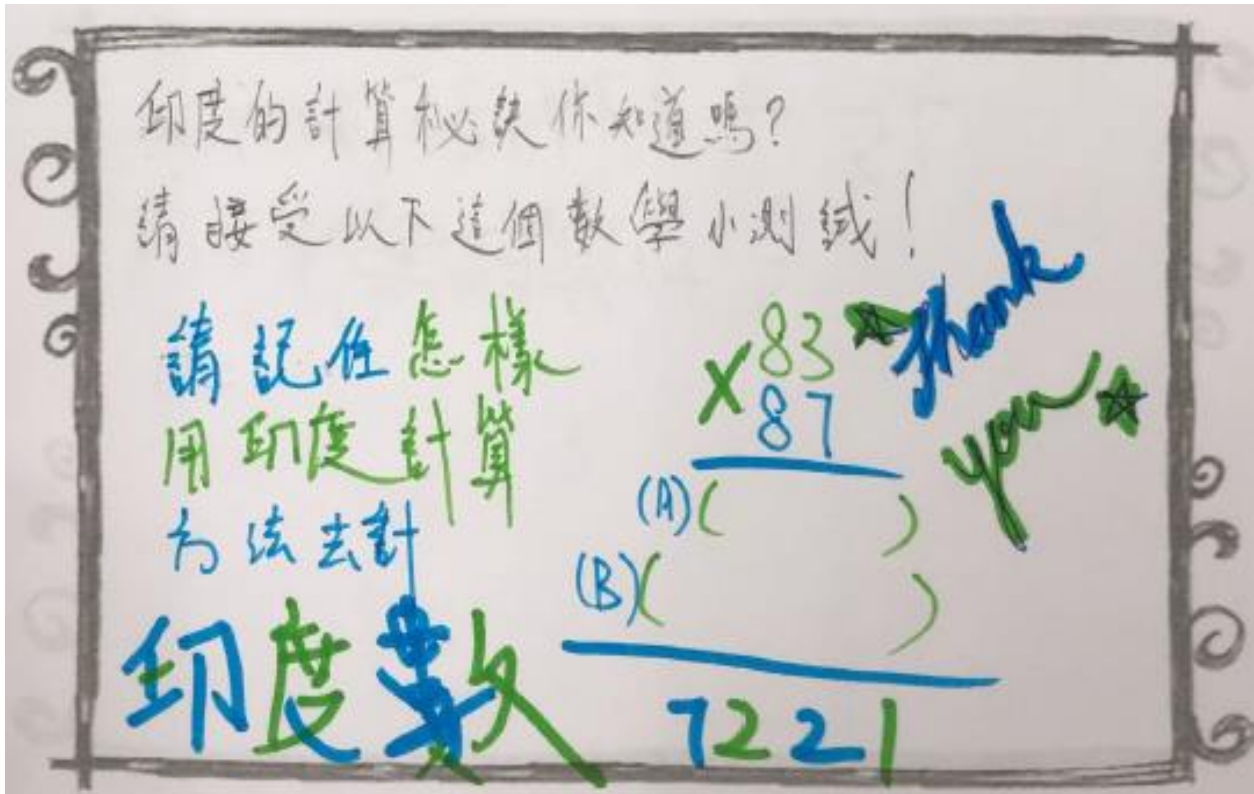 印度的計算秘訣你知道嗎?
請接受以下這個數學小測試!
請記住怎樣
用印度計算
方法去計
印度數
×83
87
(A)( )
(B)( )
7221
Thank
you